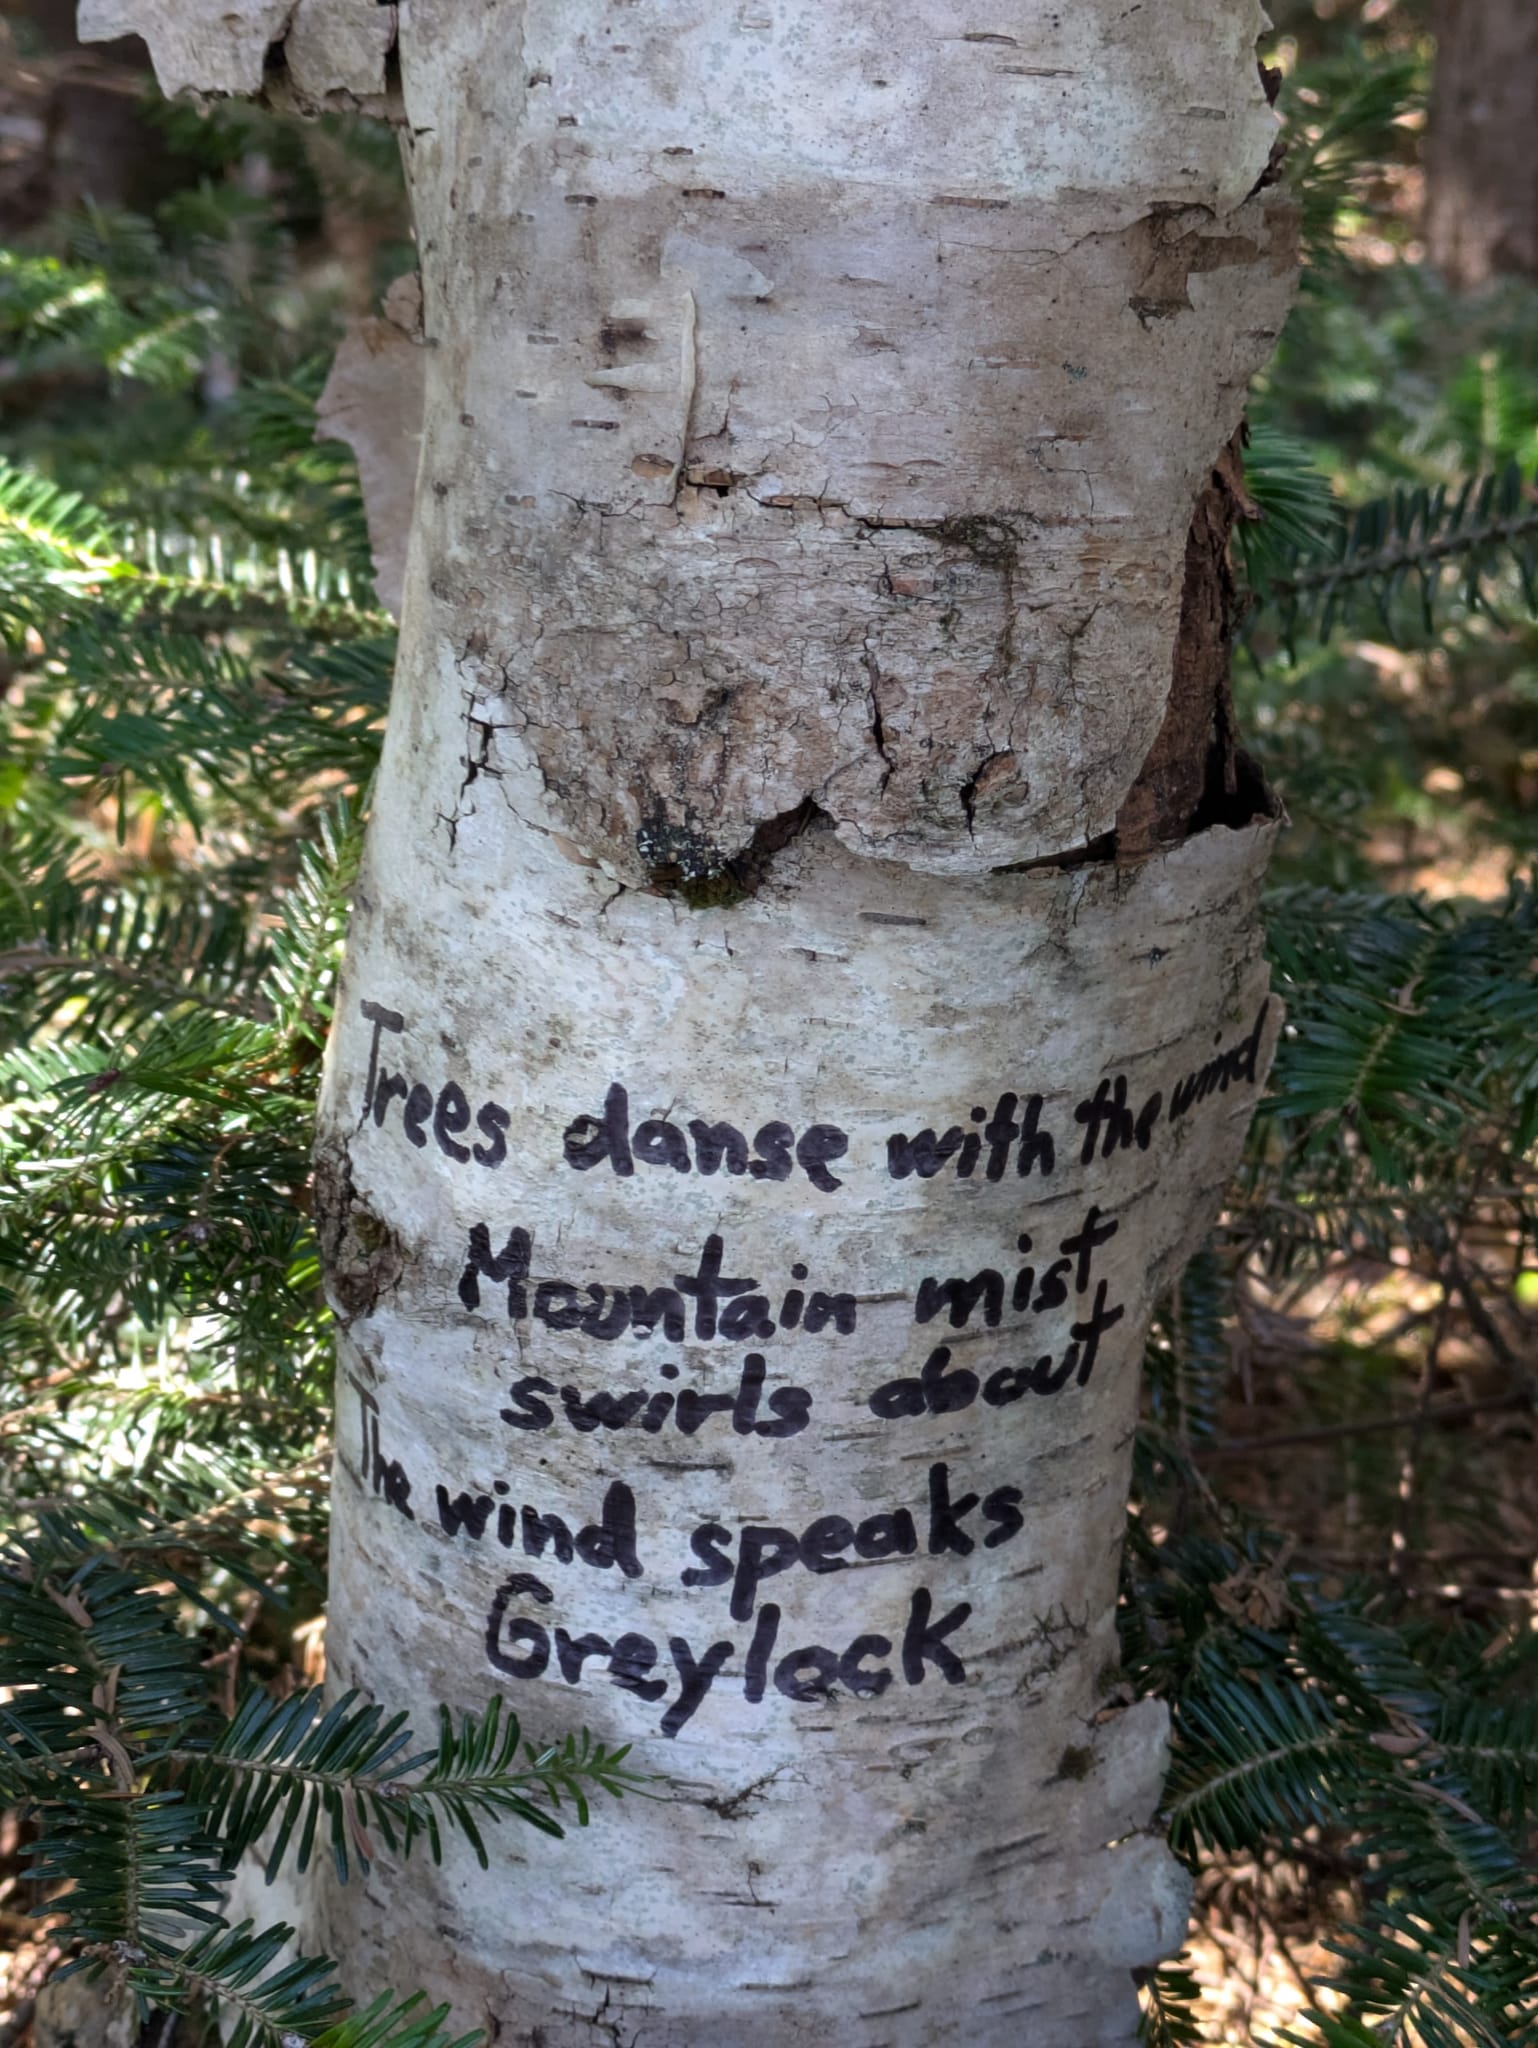 Trees danse with the wind
Mountain mist
swirls about
The wind speaks
Greylock